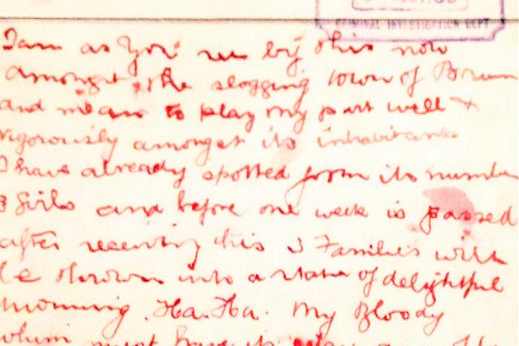 CRIMINAL INVESTIGATION DEPT
I am as you see by this note
amongst the slogging town of Brum
and mean to play my part well &
vigorously amongst its inhabitants
I have already spotted from its number
3 Girls and before one week is passed
after receiving this 3 Families will
be thrown into a state of delightful
mourning. Ha. Ha. My Bloody
whim must have its way